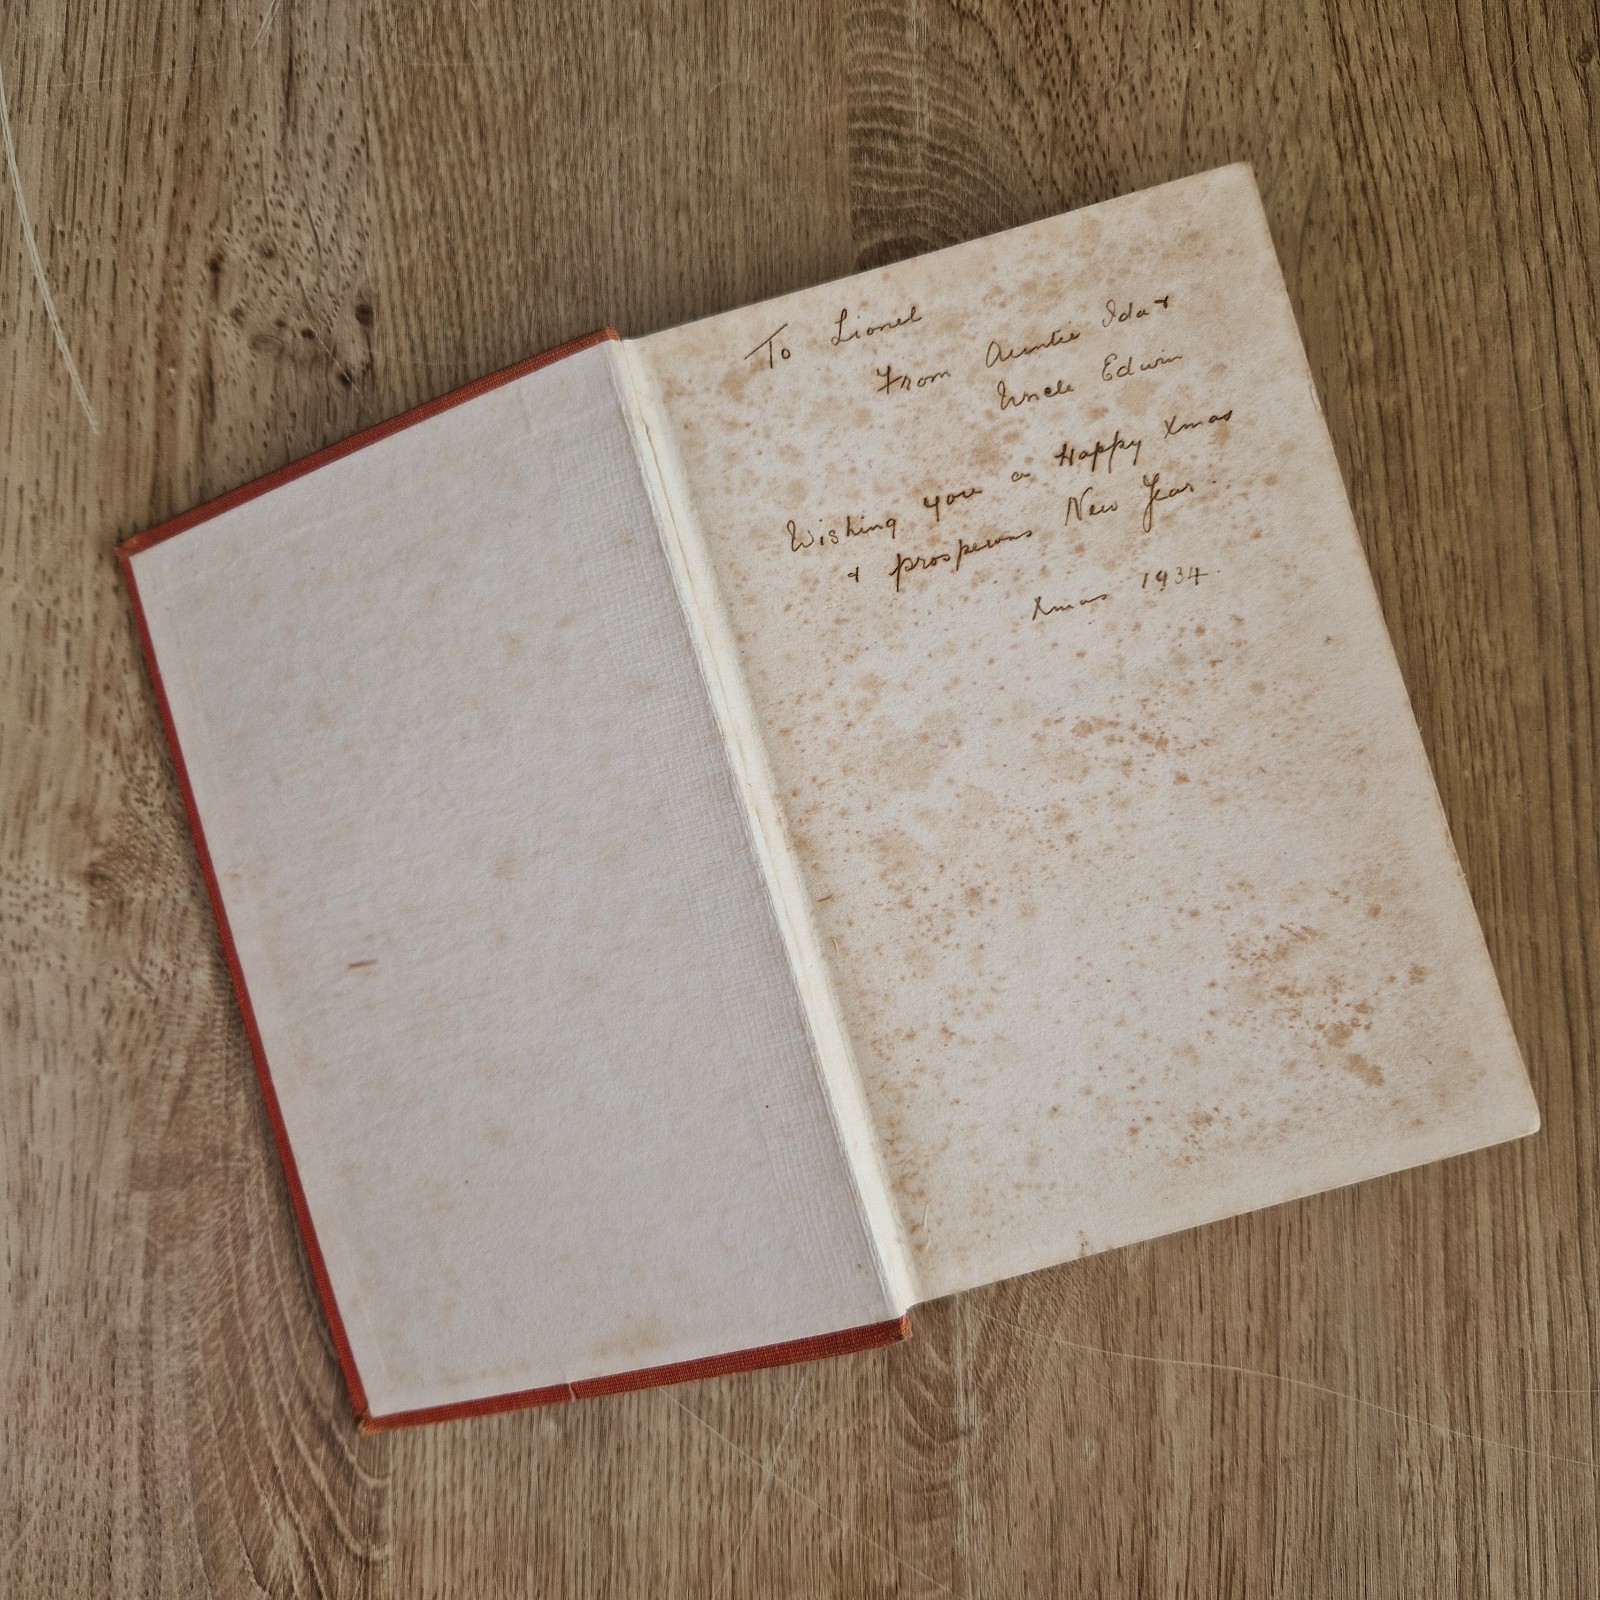 To Lionel
From Auntie Ida &
Uncle Edwin
Wishing you a Happy Xmas
& prosperous New Year.
Xmas 1934.